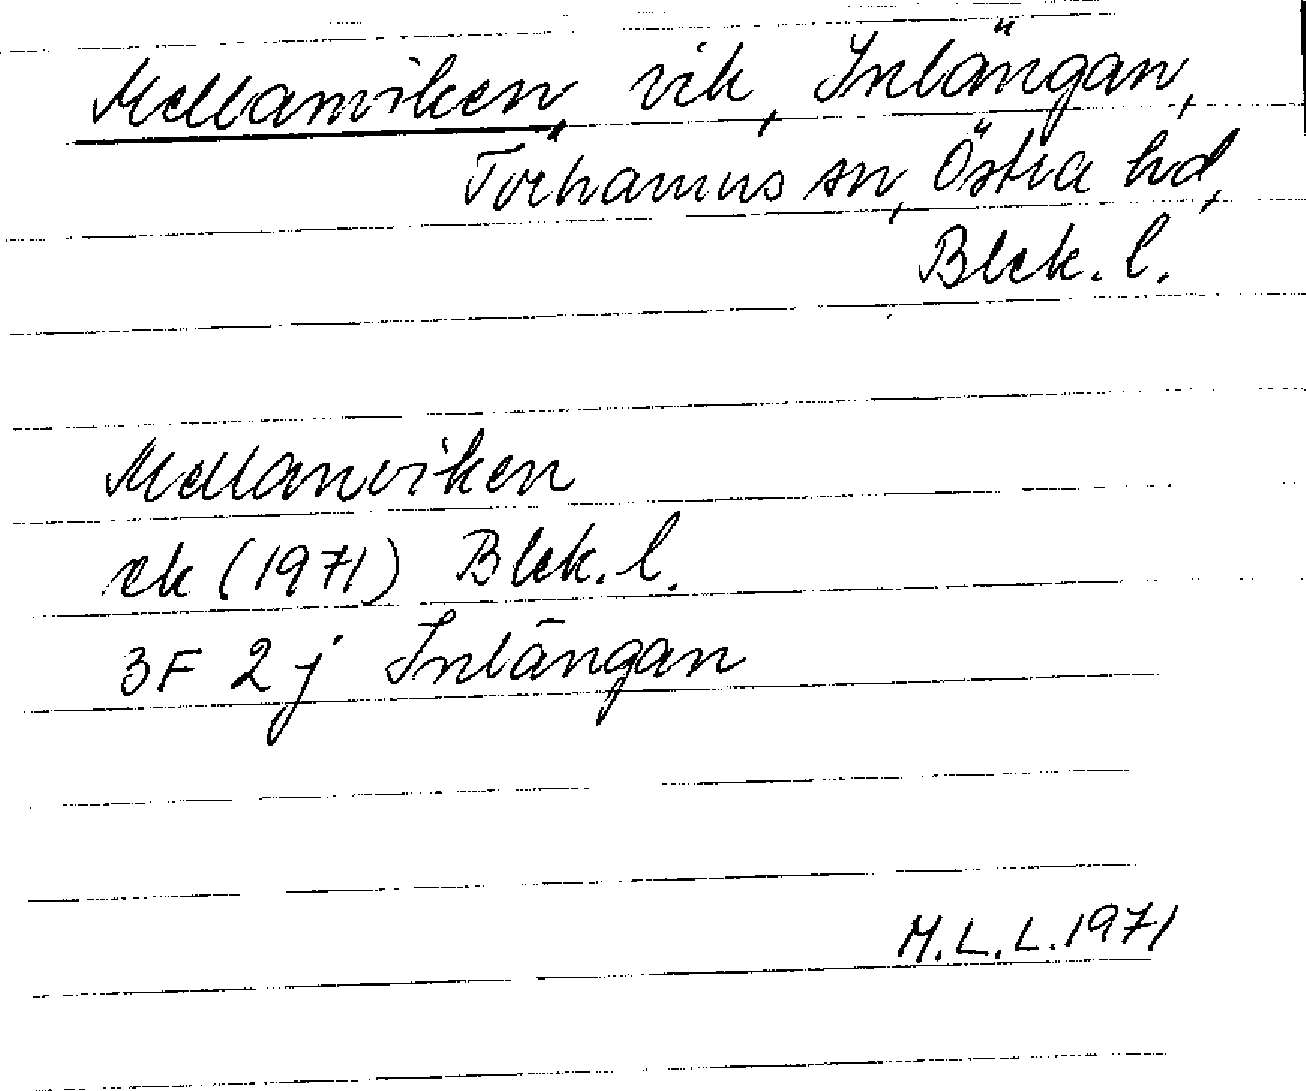 Mellanviken, vik, Inlängan,
Torhamns sn, Östra hd,
Blek. l.
Mellanviken
ek (1971) Blek. l.
3F 2j Inlängan
M.L.L. 1971